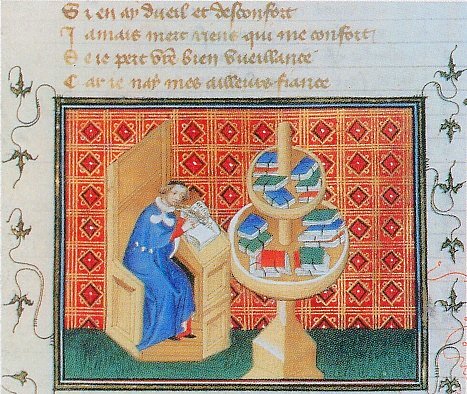 Si en ay dueil et desconfort
Iamais niert riens qui me confort
Se ie pert vr̃e bien vueillance
Car ie nay mes ailleurs fiance